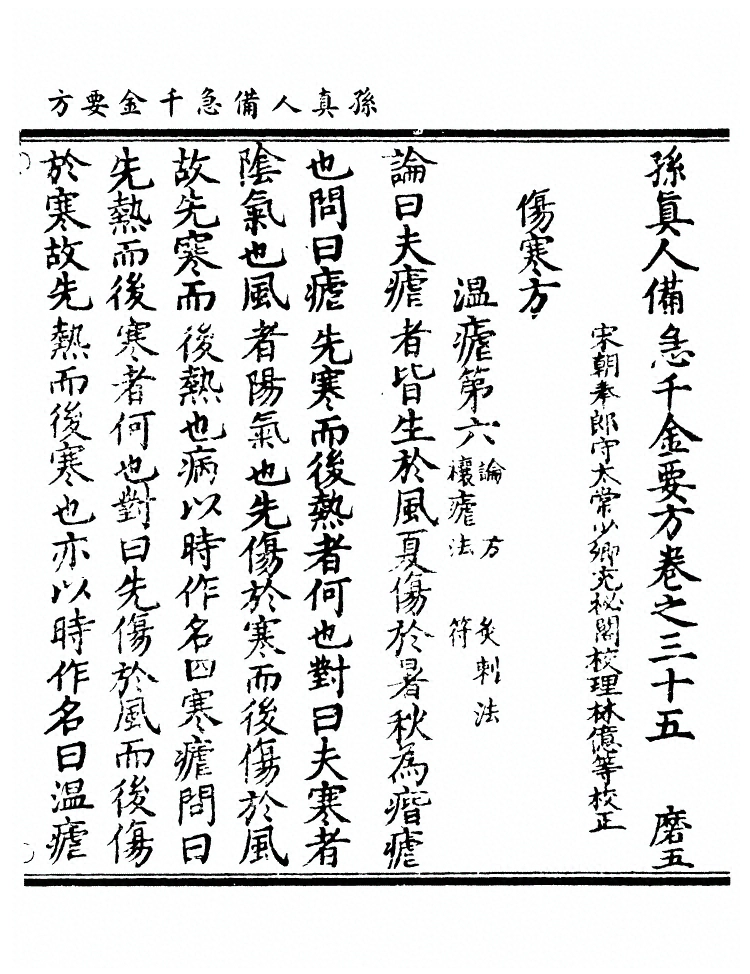 孫真人備急千金要方
孫眞人備急千金要方卷之三十五　磨五
宋朝奉郎守太常少卿充秘閣校理林億等校正
傷寒方
温瘧第六 論 方 灸刺法
禳瘧法 符
論曰夫瘧者皆生於風夏傷於暑秋為痎瘧
也問曰瘧先寒而後熱者何也對曰夫寒者
陰氣也風者陽氣也先傷於寒而後傷於風
故先寒而後熱也病以時作名曰寒瘧問曰
先熱而後寒者何也對曰先傷於風而後傷
於寒故先熱而後寒也亦以時作名曰温瘧